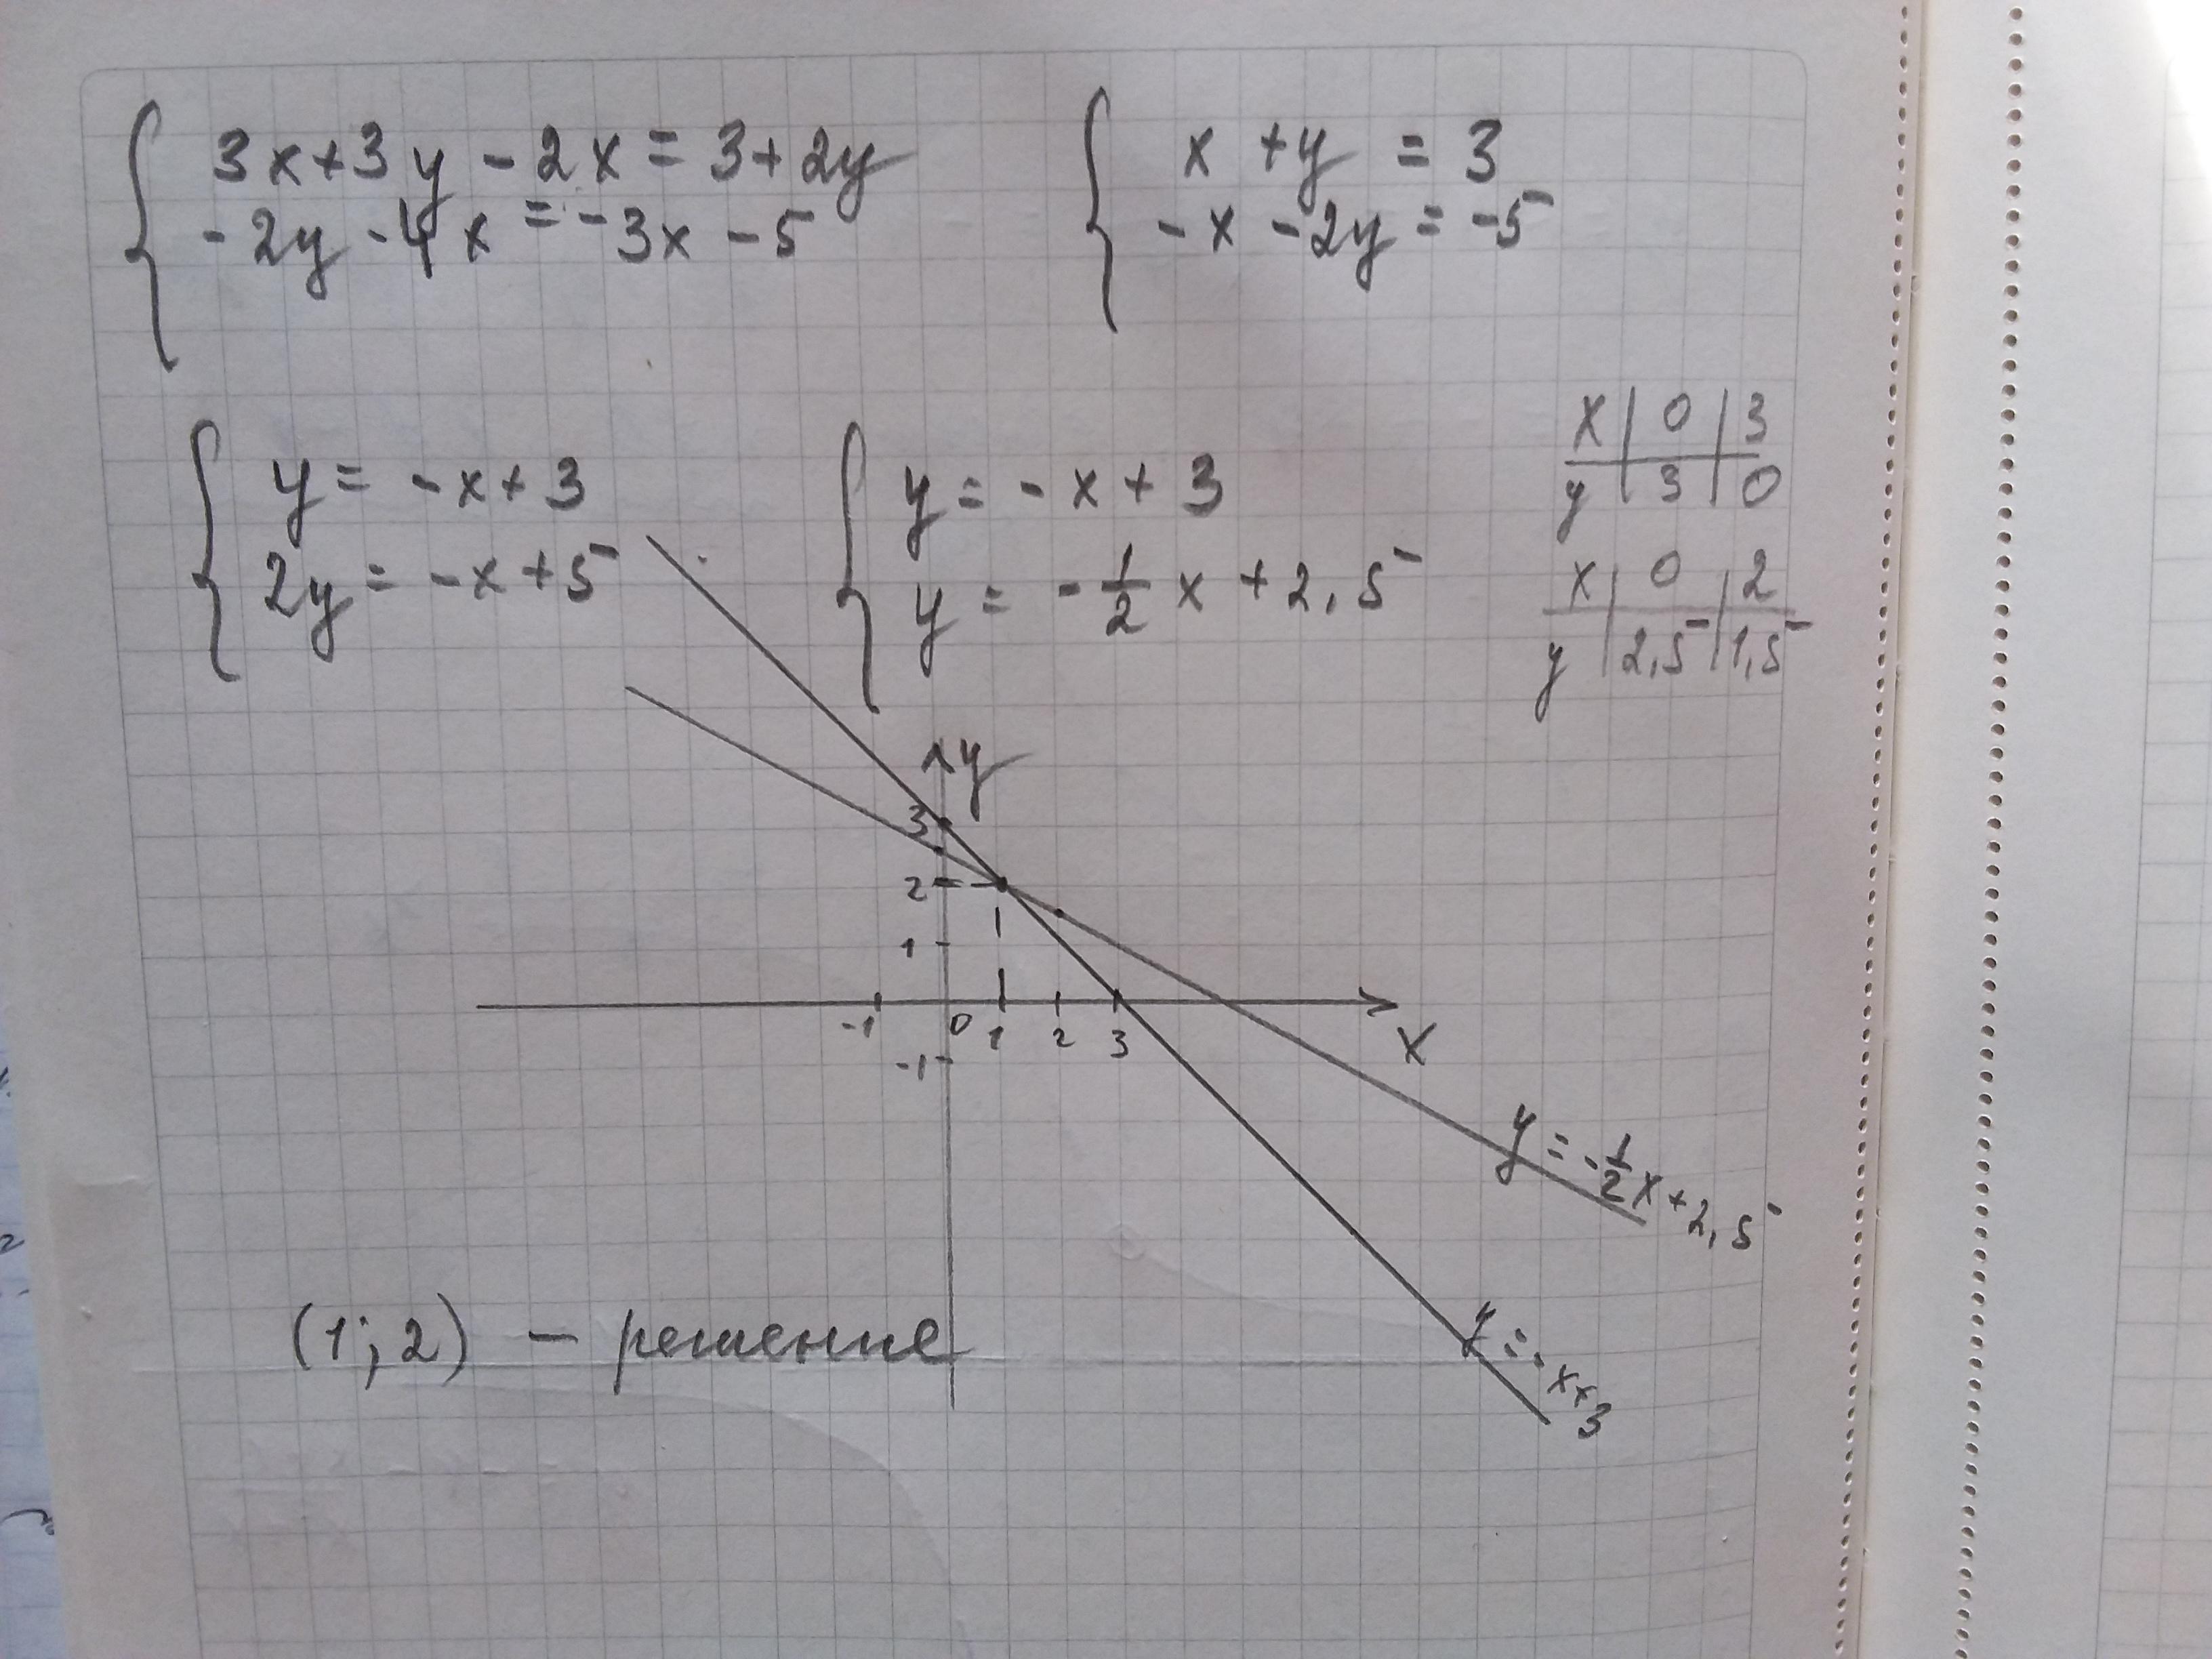 3x+3y-2x=3+2y
-2y-4x=-3x-5
x+y=3
-x-2y=-5
y=-x+3
2y=-x+5
y=-x+3
y=-1/2x+2,5
x | 0 | 3
y | 3 | 0
x | 0 | 2
y | 2,5 | 1,5
y
3
2
1
-1 0 1 2 3
x
-1
y=-1/2x+2,5
y=-x+3
(1;2) - решение